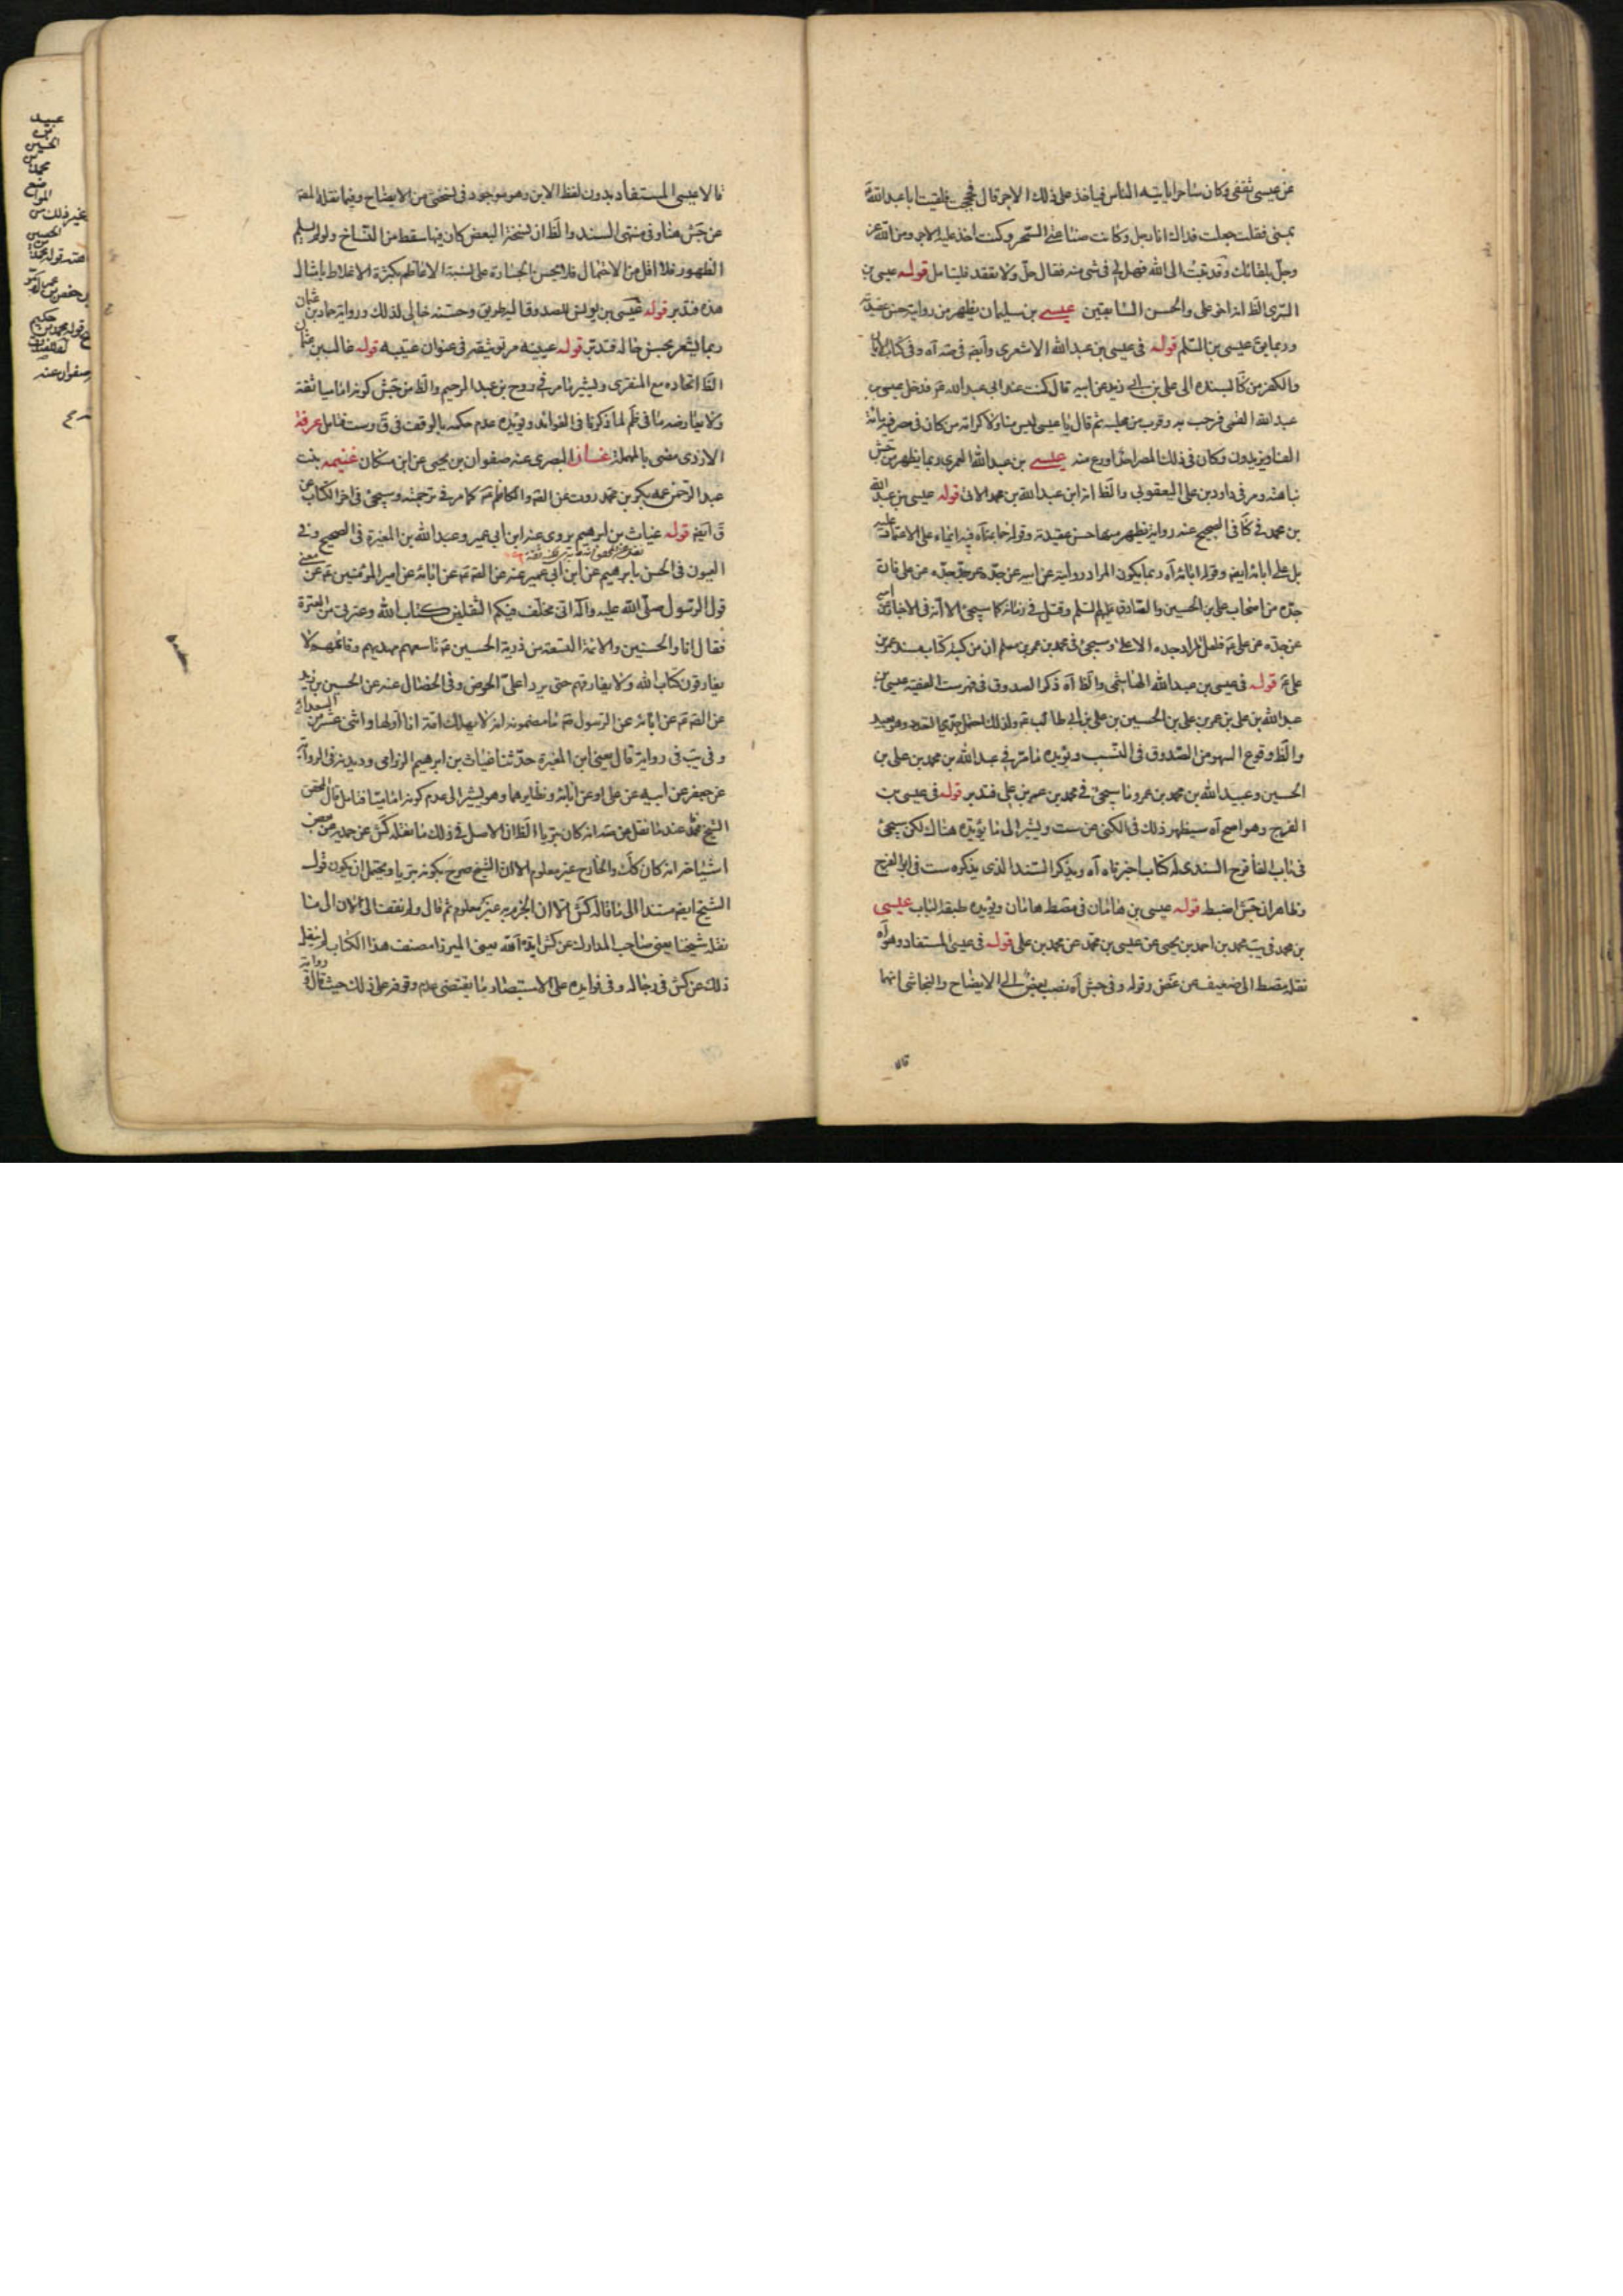 عن عيسى ثقفى وكان ساحرا ياتيه الناس فياخذ على ذلك الاجر قال فحججت فلقيت ابا عبد الله ع
بمنى فقلت جعلت فداك انا رجل وكانت صناعتى السحر وكنت اخذ عليه الاجر ومن الله عز
وجل بلقائك وقد تبت الى الله فهل لى فى شئ منه فقال حل ولا تعقد فليتامل قوله عيسى بن
السرى الظ انه اخو على والحسن السابقين عيسے بن سليمان يظهر من رواية حسن عقيدته
وربما يق عيسى بن السلم قوله فى عيسى بن عبد الله الاشعرى وآيضه فى مته آه وفى كتاب الايمان
والكفر من كا بسنده الى على بن ابى زيد عن ابيه قال كنت عند ابى عبد الله ع فدخل عيسى بن
عبد الله القمى فرحب به وقرب من مجلسه ثم قال يا عيسى ليس منا ولا كرامة من كان فى مصر فيه مائة
الف او يزيدون وكان فى ذلك المصر احد اورع منه عيسے بن عبد الله العمرى ربما يظهر من جش
نباهته ومر فى داود بن على اليعقوبى والظ انه ابن عبد الله بن محمد الاتى قوله عيسى بن عبد الله
بن محمد فى كا فى الصحيح عنه رواية يظهر منها حسن عقيدته وقوله جماعتاه فيه ايماء على الاعتماد عليه
بل على ابائه ايضه وقوله ابائه آه ربما يكون المراد روايته عن ابيه عن جده عن جد جده عن على فان
جده من اصحاب على بن الحسين والصادق عليهم السلم وقتل فى زمانه كما سيجئ الا انه فى الاخبار عن ابيه
عن جده عن على ع فلعل المراد جده الاعلى وسيجئ فى محمد بن عمر بن مسلم ان من كتبه كتاب مسند عمر بن
على ع قوله فى عيسى بن عبد الله الهاشمى والظ آه ذكر الصدوق فى فهرست الفقيه عيسى بن
عبد الله بن على بن عمر بن على بن الحسين بن على بن ابى طالب ع ولذلك احتمل جدى التعدد وهو بعيد
والظ وقوع السهو من الصدوق فى النسب ويؤيده ما مر فى عبد الله بن محمد بن على بن
الحسين وعبيد الله بن محمد بن عمر وما سيجئ فى محمد بن عمر بن على فتدبر قوله فى عيسى بن
الفرج وهو اصح آه سيظهر ذلك فى الكنى عن ست ويشير الى ما يؤيده هناك لكن سيجئ
فى باب الفا فرج السندى له كتاب اخبرناه آه ويذكر السند الذى يذكره ست فى ابو الفرج
وظاهر ان جش اضبط قوله عيسى بن هامان فى مقصط هامان ويؤيده طبقة الباب عيسى
بن محمد فى يب محمد بن احمد بن يحيى عن عيسى بن محمد عن محمد بن على قوله فى عيسى المستفاد وهو آه
نقله مقصط الى ضعيف عن غض وقوله وفى جش آه نصب بعض الى الايضاح والنجاشى انهما
قالا
قالا عيسى المستفاد بدون لفظ الابن وهو موجود فى نسختى من الايضاح وفيما نقله المصه
عن جش هنا وفى منتهى السند والظ ان نسخة البعض كان فيها سقط من النساخ ولو لم يسلم
الظهور فلا اقل من الاحتمال فلا يحسن الجسارة على نسبة الاعاظم بكثرة الاغلاط بامثال
هذه فتدبر قوله عيسى بن يونس للصدوق اليه طريق وحسنه خالى لذلك ورواية حماد بن عثمان
ربما يشعر بحسن حاله فتدبر قوله عيينه مر توثيقه فى عنوان عتيبه قوله غالب بن عثمان
الظ اتحاده مع المنقرى ويشير ما مر فى روح بن عبد الرحيم والظ من جش كونه اماميا ثقة
ولا يعارضه ما فى ظم لما ذكرنا فى الفوائد ويؤيده عدم حكمه بالوقف فى ق وست فتامل عرفة
الازدى مضى بالمهملة غسان البصرى عنه صفوان بن يحيى عن ابن مسكان غنيمه بنت
عبد الرحمن عمه بكر بن محمد روت عن الصه والكاظم ع كما مر فى ترجمته وسيجئ فى اخر الكتاب عن
ق ايضه قوله غياث بن ابرهيم يروى عنه ابن ابى عمير وعبد الله بن المغيرة فى الصحيح وفى
العيون فى الحسن بابرهيم عن ابن ابى عمير عنه عن الصه ع عن ابائه عن امير المؤمنين ع عن معنى
قول الرسول صلى الله عليه وآله انى مخلف فيكم الثقلين كتاب الله وعترتى من العترة
فقال انا والحسنين والائمة التسعة من ذرية الحسين ع تاسعهم مهديهم وقائمهم لا
يفارقون كتاب الله ولا يفارقهم حتى يردا على الحوض وفى الخصال عنه عن الحسين بن زيد
عن الصه ع عن ابائه عن الرسول ص ما مضمونه انه لا يهلك امة انا اولها واثنى عشر من السعداء
وفى يب فى رواية قال يعنى ابن المغيرة حدثنا غياث بن ابرهيم الرزامى وديدنه فى الرواية
عن جعفر عن ابيه عن على او عن ابائه ونظايرهما وهو يشير الى عدم كونه اماميا فتامل قال المحقق
الشيخ محمد عند ما نقل عن مته انه كان بتريا الظ ان الاصل فى ذلك ما نقله كش عن حمدويه عن بعض
اشياخه انه كان كذلك والجارح غير معلوم الا ان الشيخ صرح بكونه بتريا ويحتمل ان يكون قول
الشيخ ايضه مستندا الى ما قاله كش الا ان الجزم به غير معلوم ثم قال ولم نقف الى الان الى ما
نقله شيخنا يعنى صاحب المدارك عن كش ايده الله يعنى الميرزا مصنف هذا الكتاب لم ينقل
ذلك عن كش فى رجاله وفى فوايده على الاستبصار ما يقتضى عدم وقوفه على ذلك حيث قال رواية
عبيد
بن
الحسين
محمد بن
المواضع
بغير ذلك من
صفوان عنه